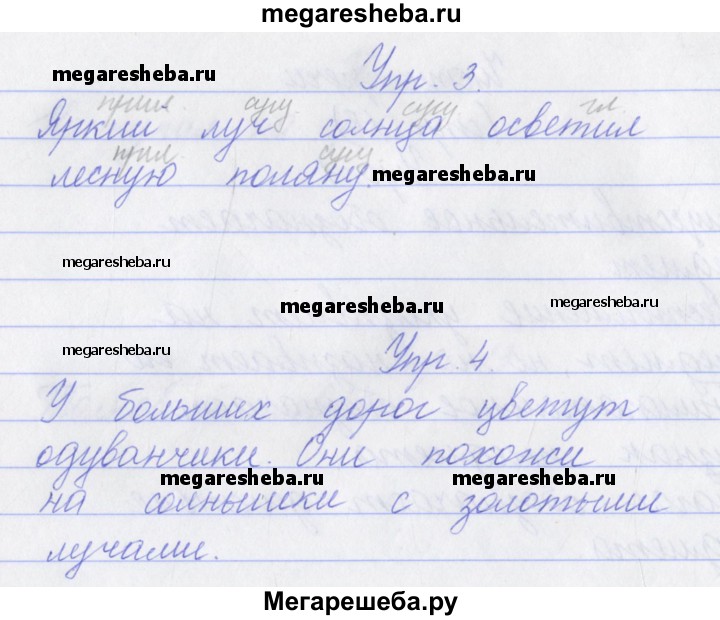 megaresheba.ru
Упр. 3.
megaresheba.ru
прил. сущ. сущ. гл.
Яркий луч солнца осветил
прил. сущ.
лесную поляну.
megaresheba.ru
megaresheba.ru
megaresheba.ru
megaresheba.ru
megaresheba.ru
Упр. 4.
У больших дорог цветут
одуванчики. Они похожи
megaresheba.ru
megaresheba.ru
на солнышки с золотыми
лучами.
megaresheba.ru
Мегарешеба.ру